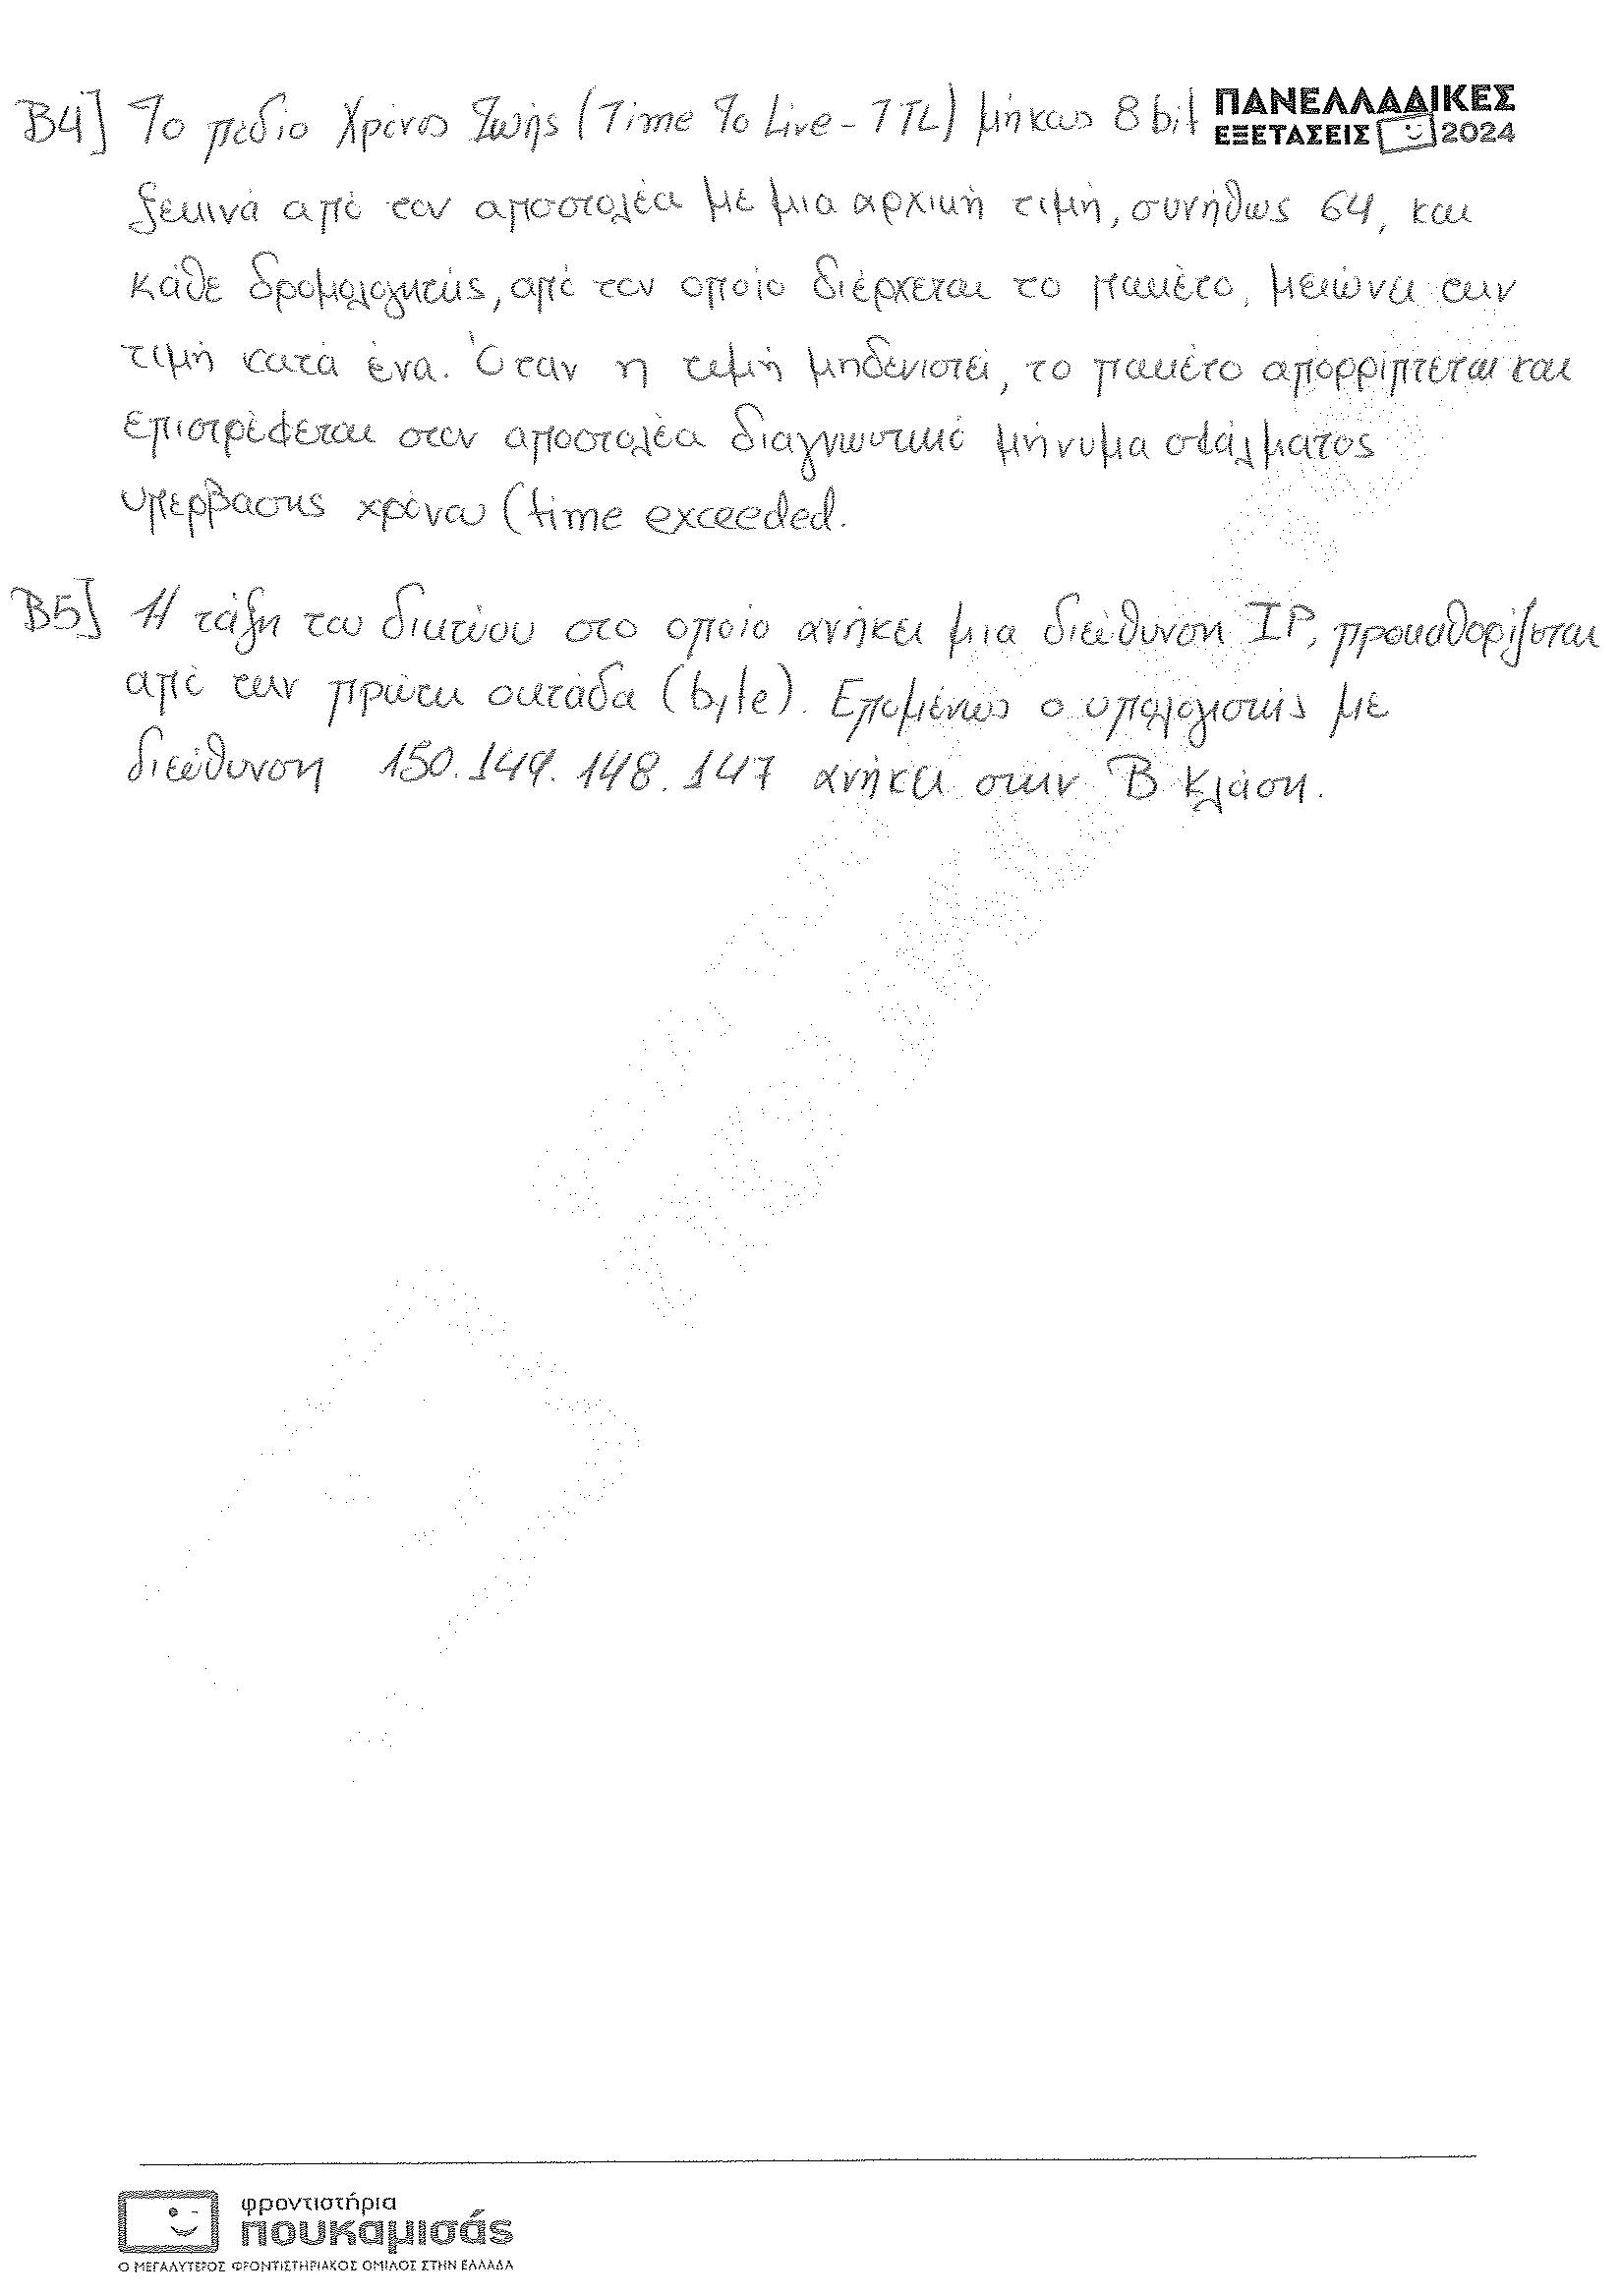 B4] Το πεδίο Χρόνος Ζωής (Time To Live - TTL) μήκους 8 bit
ΠΑΝΕΛΛΑΔΙΚΕΣ
ΕΞΕΤΑΣΕΙΣ 2024
ξεκινά από τον αποστολέα με μια αρχική τιμή, συνήθως 64, και
κάθε δρομολογητής, από τον οποίο διέρχεται το πακέτο, μειώνει την
τιμή κατά ένα. Όταν η τιμή μηδενιστεί, το πακέτο απορρίπτεται και
επιστρέφεται στον αποστολέα διαγνωστικό μήνυμα σφάλματος
υπέρβασης χρόνου (time exceeded.
B5] Η τάξη του δικτύου στο οποίο ανήκει μια διεύθυνση IP, προκαθορίζεται
από την πρώτη οκτάδα (byte). Επομένως ο υπολογιστής με
διεύθυνση 150.149.148.147 ανήκει στην Β κλάση.
φροντιστήρια
πουκαμισάς
Ο ΜΕΓΑΛΥΤΕΡΟΣ ΦΡΟΝΤΙΣΤΗΡΙΑΚΟΣ ΟΜΙΛΟΣ ΣΤΗΝ ΕΛΛΑΔΑ